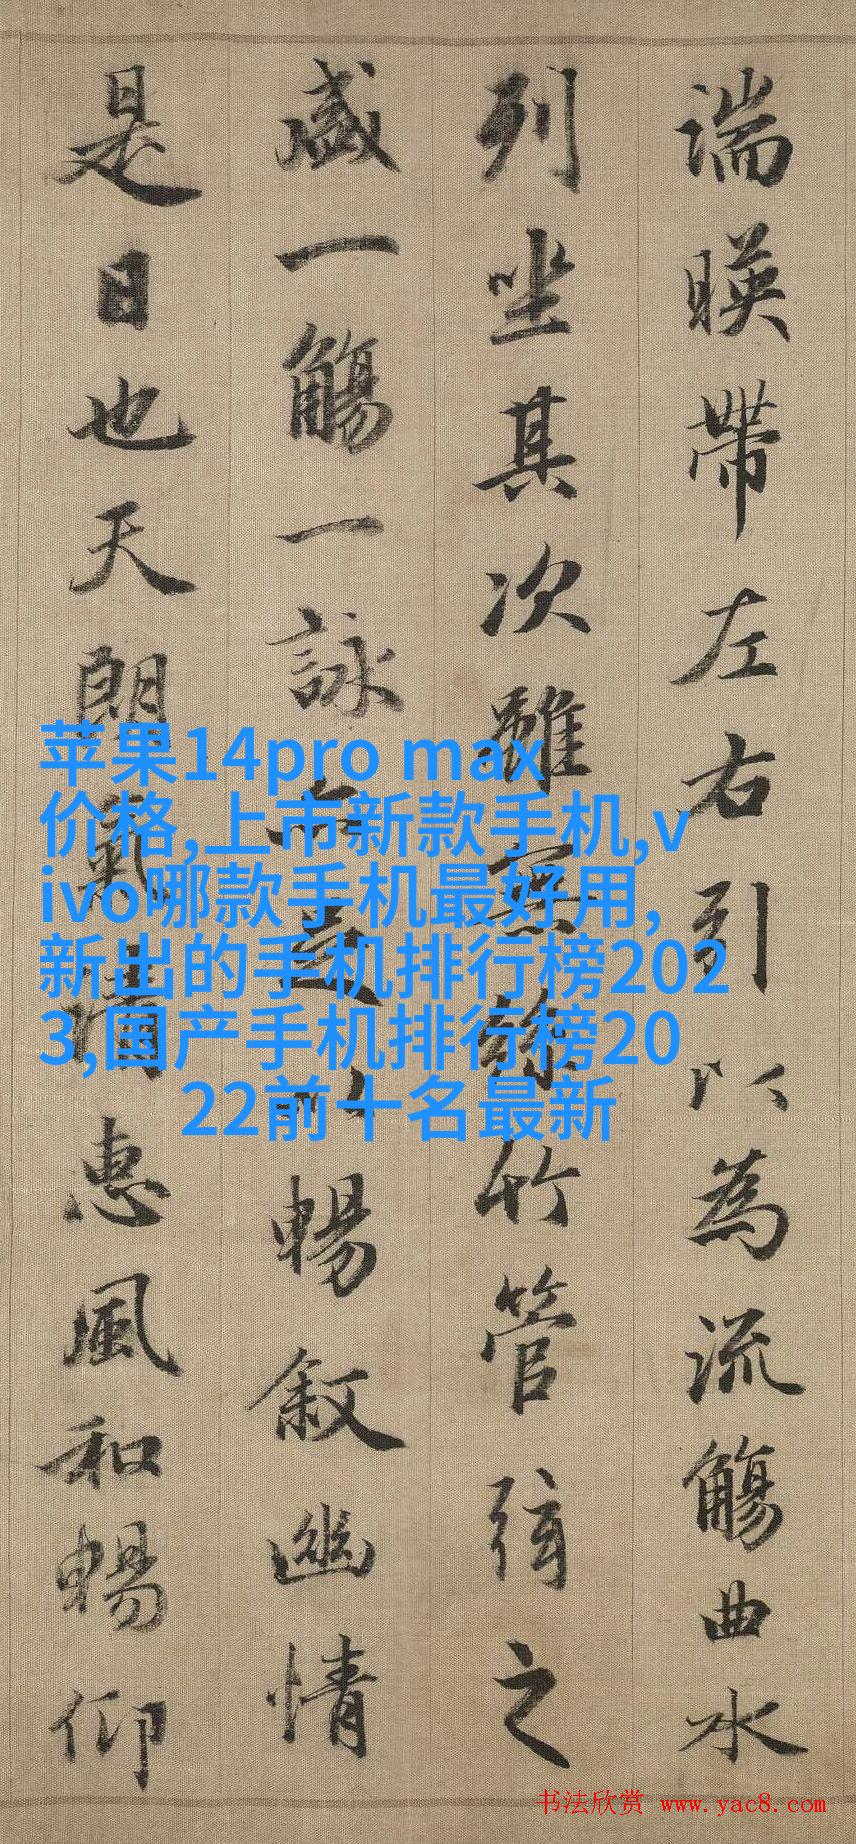 湍暎帶左右引以為流觴曲水
列坐其次雖無絲竹管弦之
盛一觴一詠亦足以暢叙幽情
是日也天朗氣清惠風和暢仰
苹果14pro max
价格,上市新款手机,v
ivo哪款手机最好用,
新出的手机排行榜202
3,国产手机排行榜20
22前十名最新
书法欣赏 www.yac8.com